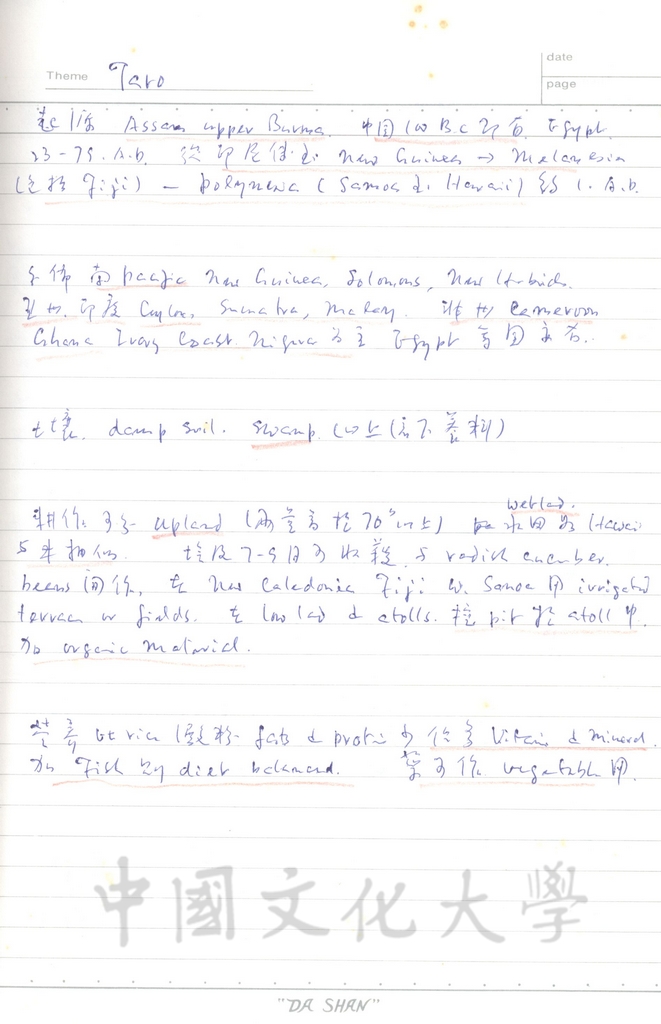 date
Theme Taro
page
起源 Assam upper Burma. 中国 100 B.C 即有. Egypt
23-79. A.D. 從印尼傳至 New Guinea → Melanesia
(包括 Fiji) — polynesia (Samoa 至 Hawaii) 1. A.D.
分佈 南 pacific New Guinea, Solomons, New Hebrids.
亞州. 印度 Ceylon, Sumatra, Malay. 非州 Cameroon
Ghana Ivory Coast Nigeria 為主 Egypt
土壤. damp soil. swamp.
wetland.
耕作: 可分 upland (雨量高於 70" 以上) 水田 Hawaii
5 7-9 月可收穫. 与 radish cucumber.
beans 間作. 在 New Caledonia Fiji W. Samoa 用 irrigated
terrace or fields. 在 low land & atolls. 挖 pit 於 atoll 中.
加 organic material.
营養 fats & protein 少 Vitamin & Mineral.
加 Fish 的 diet balanced. 葉可作 vegetable 用.
中國文化大學
"DA SHAN"